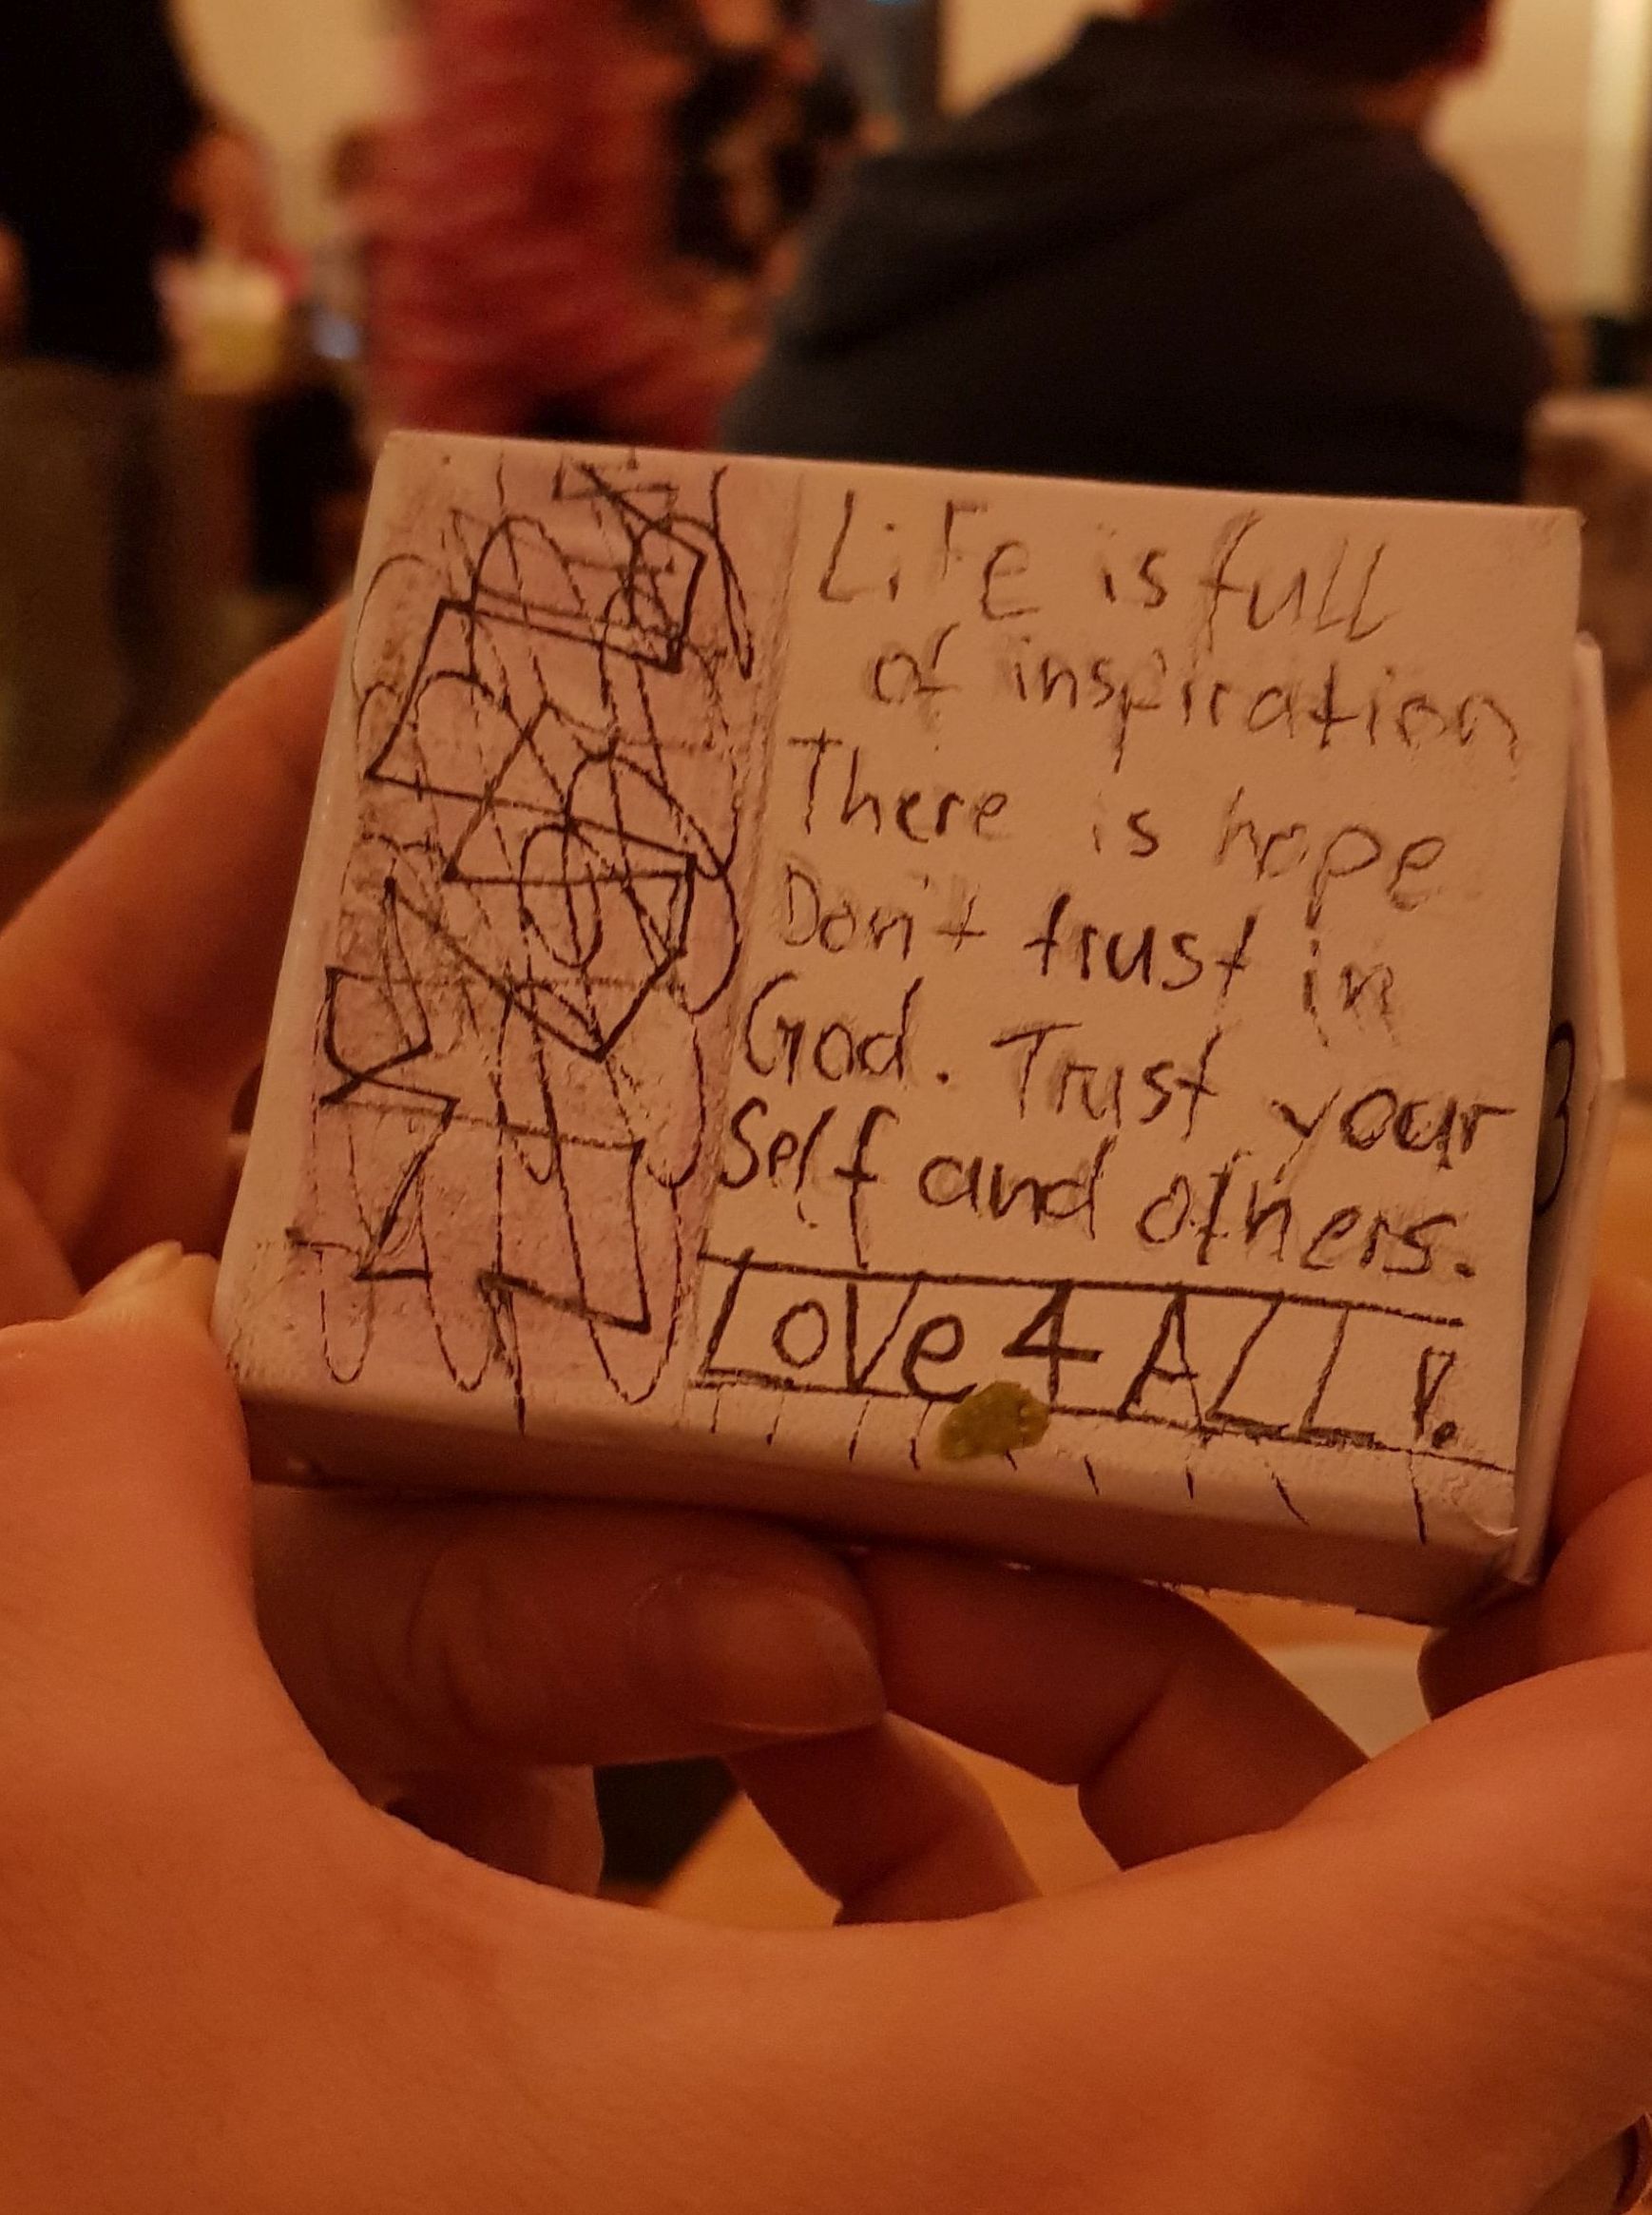 LiFe is full
of inspiration
There is hope
Don't trust in
God. Trust your
Self and others.
LoVe 4 ALL!